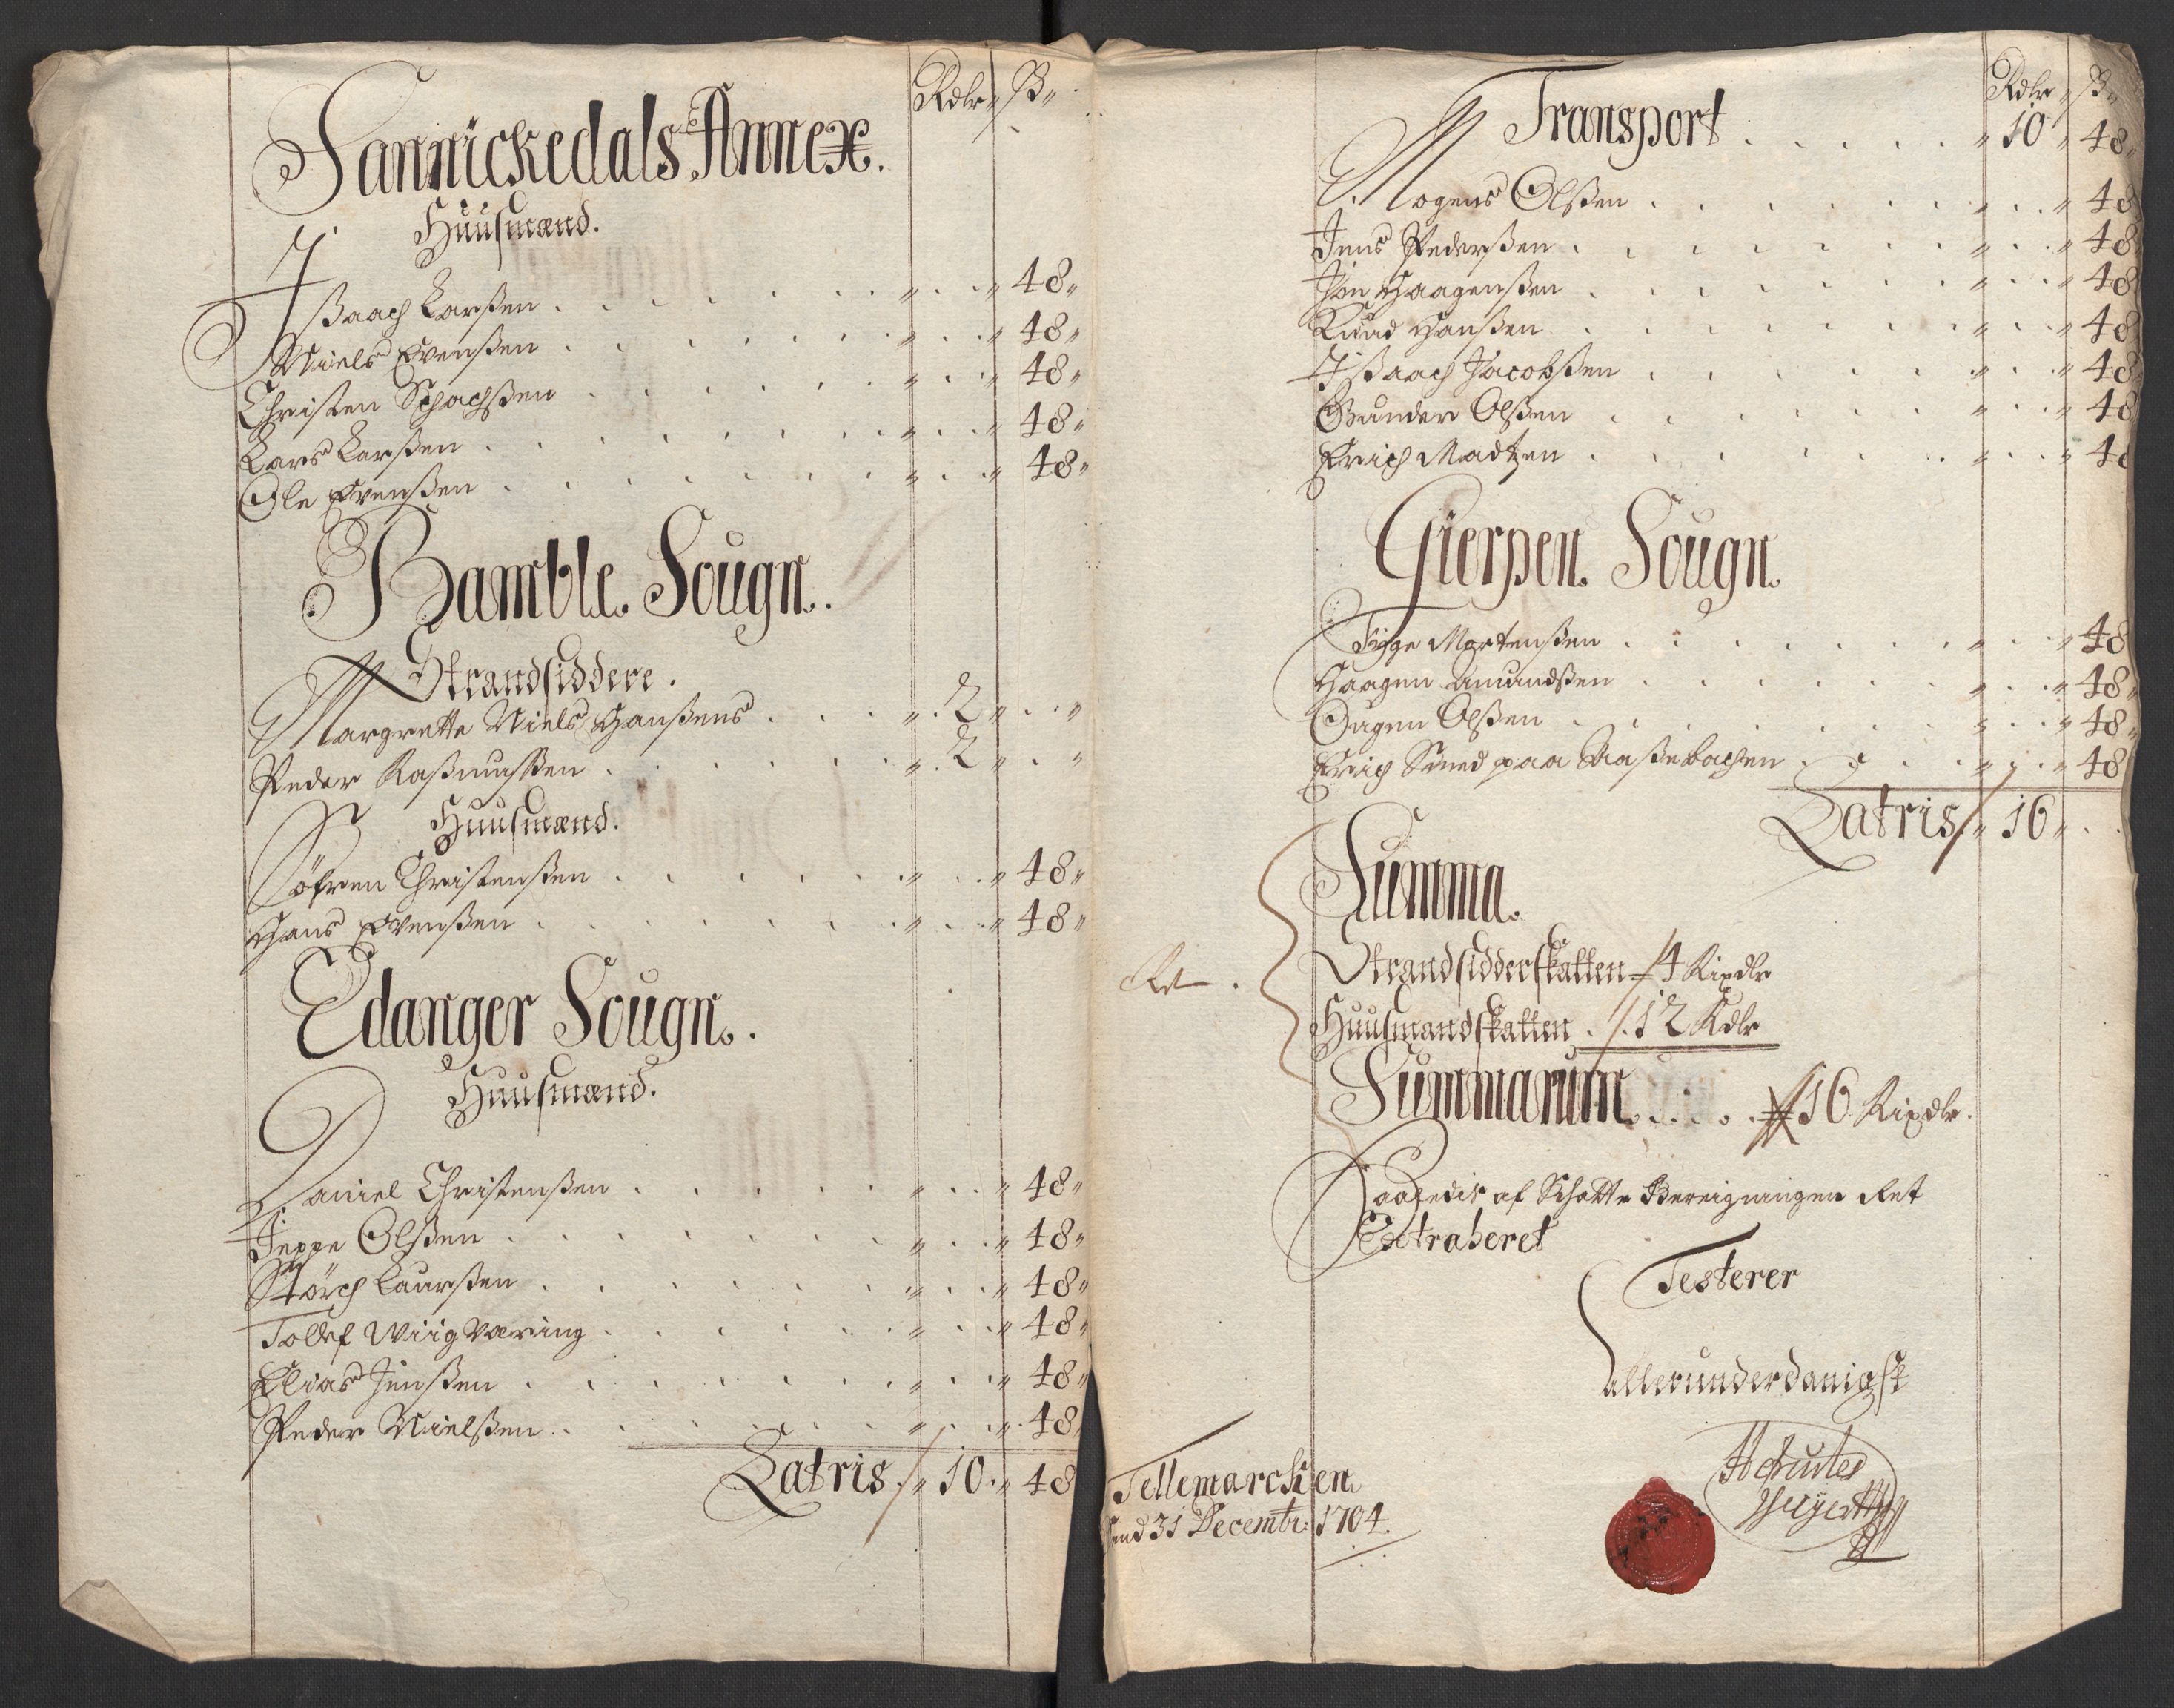 Rdlr ß
Sannickedals Annex.
Huusmænd.
Jßaach Larßen 48
Niels Evenßen 48
Christen Schachßen 48
Lars Larßen 48
Ole Evenßen 48
Bamble Sougn.
Strandsiddere.
Margrette Niels Hanßens 2
Peder Raßmußen 2
Huusmænd.
Söfren Christenßen 48
Hans Evenßen 48
Edanger Sougn.
Huusmænd.
Daniel Christenßen 48
Jeppe Olßen 48
Störch Laurßen 48
Tollef Wiig Væring 48
Elias Jenßen 48
Peder Nielßen 48
Latris 10 48
Rdlr ß
Transport 10 48
Mogens Olßen 48
Jens Pederßen 48
Jon Haagenßen 48
Knud Hanßen 48
Jßaach Jacobßen 48
Gunder Olßen 48
Erich Madtzen 48
Gierpen Sougn.
Tyge Mortenßen 48
Haagen Amundßen 48
Ougen Olßen 48
Erich Smed paa Baaßebachen 48
Latris 16
Summa.
Strandsidderskatten 4 Rixdlr
Huusmandskatten 12 Rdlr
Summarum 16 Rixdlr.
af Schatte Bereigningen Ret
Extraheret
Testerer
Allerunderdanigst
Tellemarchen
end 31 Decembr: 1704.